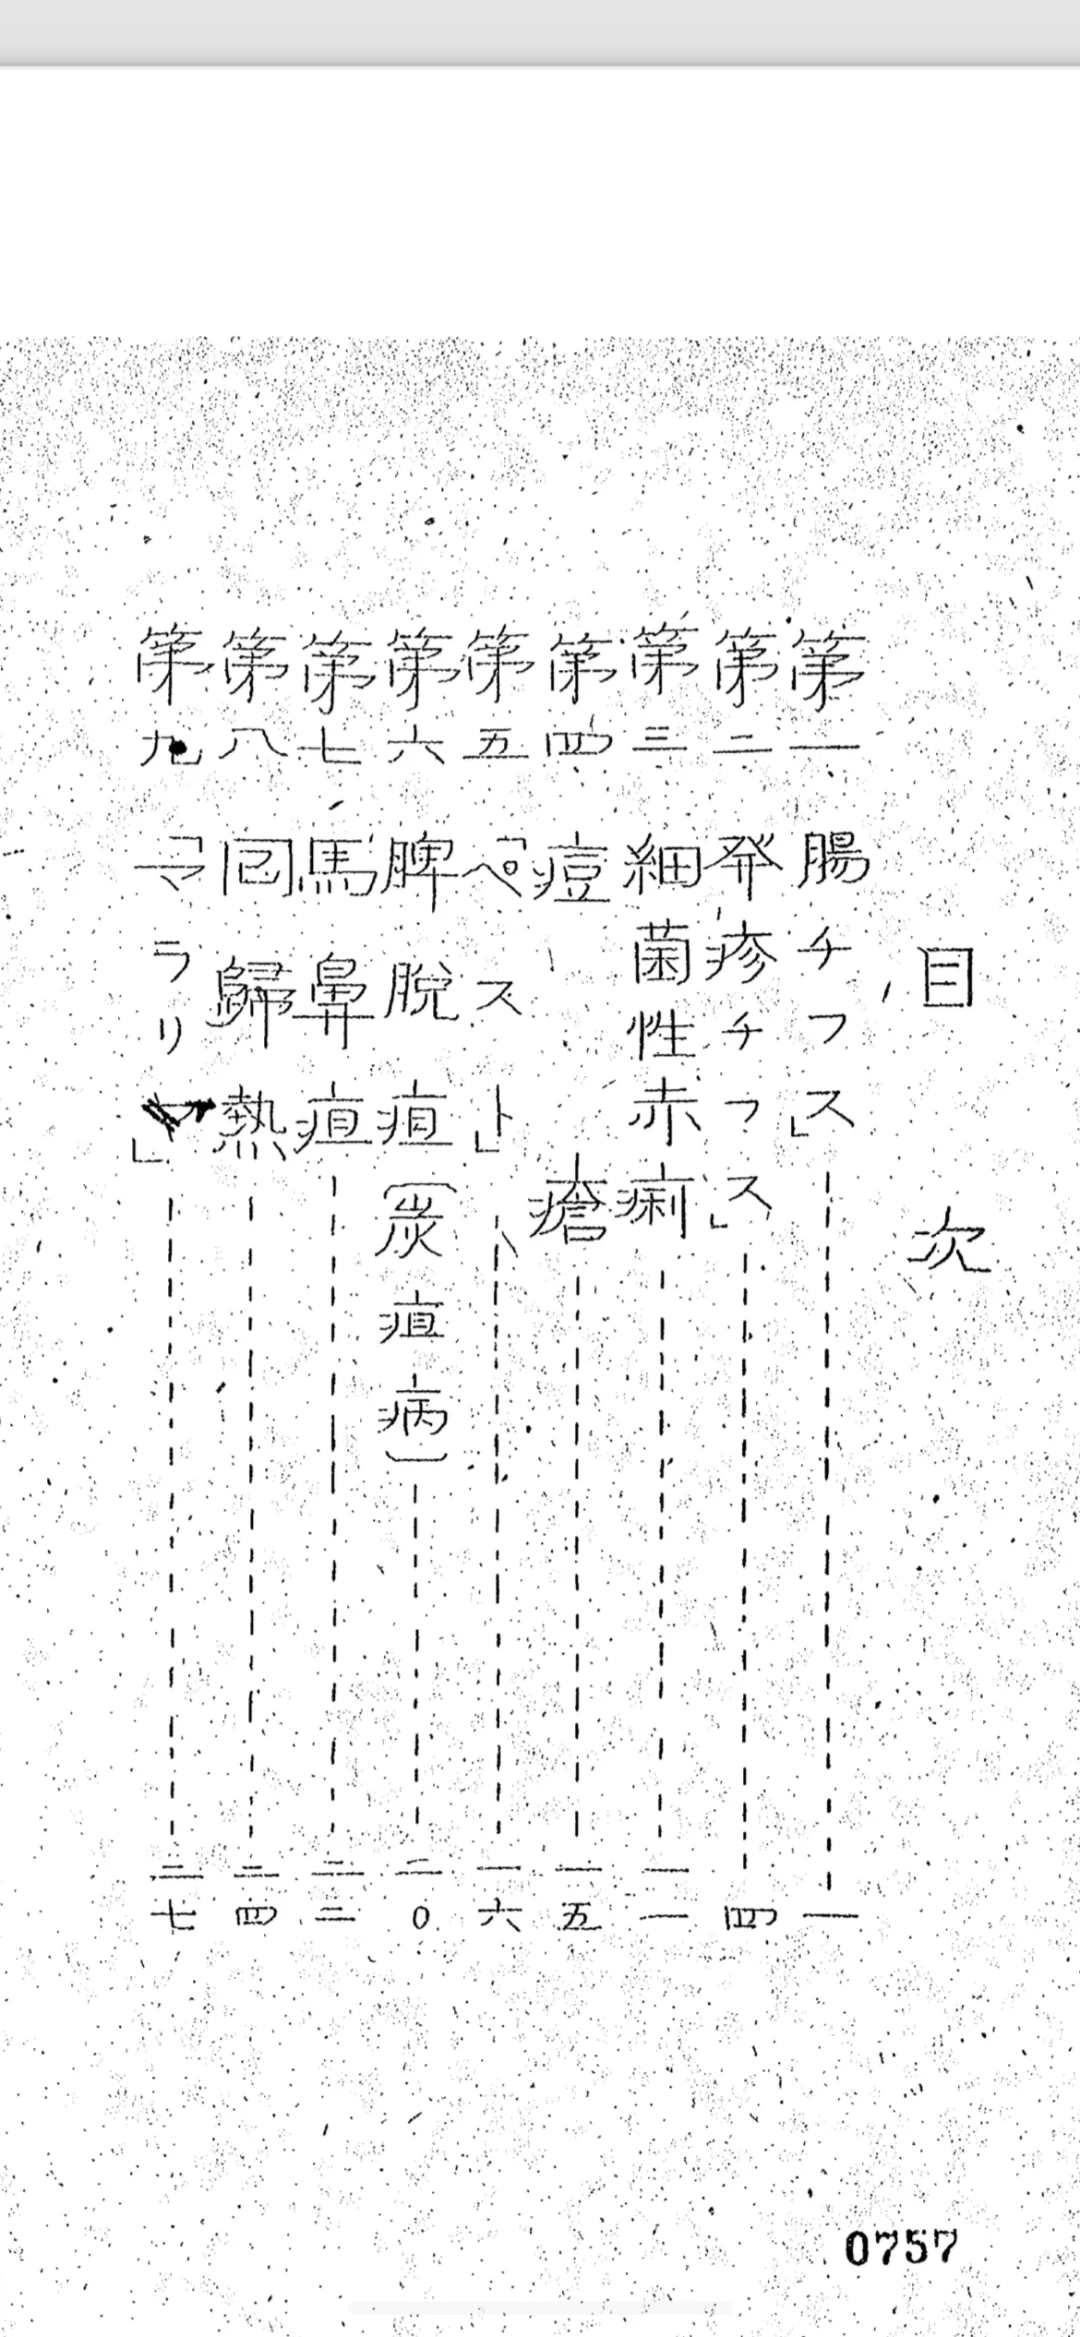 目次
第一 腸チフス」 一
第二 発疹チフス」 四
第三 細菌性赤痢 一一
第四 痘瘡 一五
第五 「ペスト」 一六
第六 脾脱疽(炭疽病) 二0
第七 馬鼻疽 二二
第八 回歸熱 二四
第九 「マラリヤ」 二七
0757